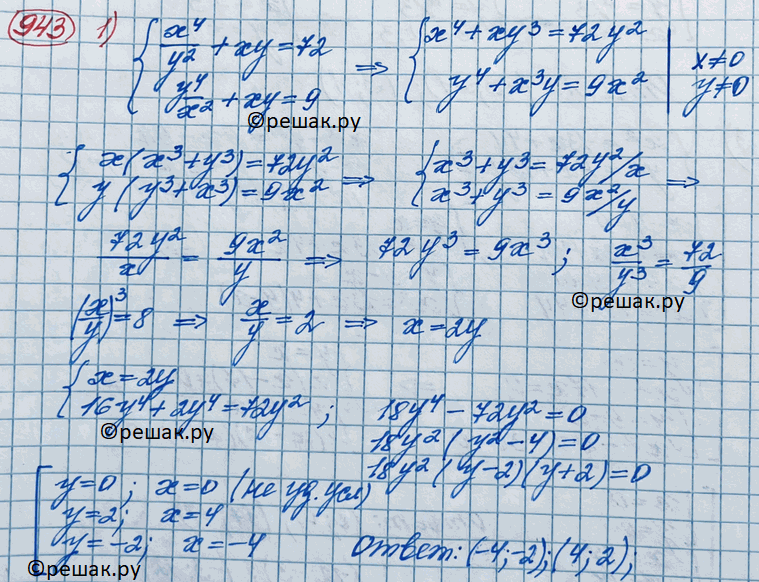 943 1) { x⁴/y² + xy = 72 ⇒ { x⁴ + xy³ = 72y² | x≠0
y⁴/x² + xy = 9 y⁴ + x³y = 9x² | y≠0
©решак.ру
{ x(x³+y³) = 72y² ⇒ { x³+y³ = 72y²/x ⇒
y(y³+x³) = 9x² x³+y³ = 9x²/y
72y²/x = 9x²/y ⇒ 72y³ = 9x³; x³/y³ = 72/9
©решак.ру
(x/y)³ = 8 ⇒ x/y = 2 ⇒ x = 2y
{ x = 2y
16y⁴ + 2y⁴ = 72y²; 18y⁴ - 72y² = 0
©решак.ру
18y²(y²-4) = 0
18y²(y-2)(y+2) = 0
[ y=0; x=0 (не уд. усл)
y=2; x=4
y=-2; x=-4 Ответ: (-4;-2); (4; 2);
©решак.ру